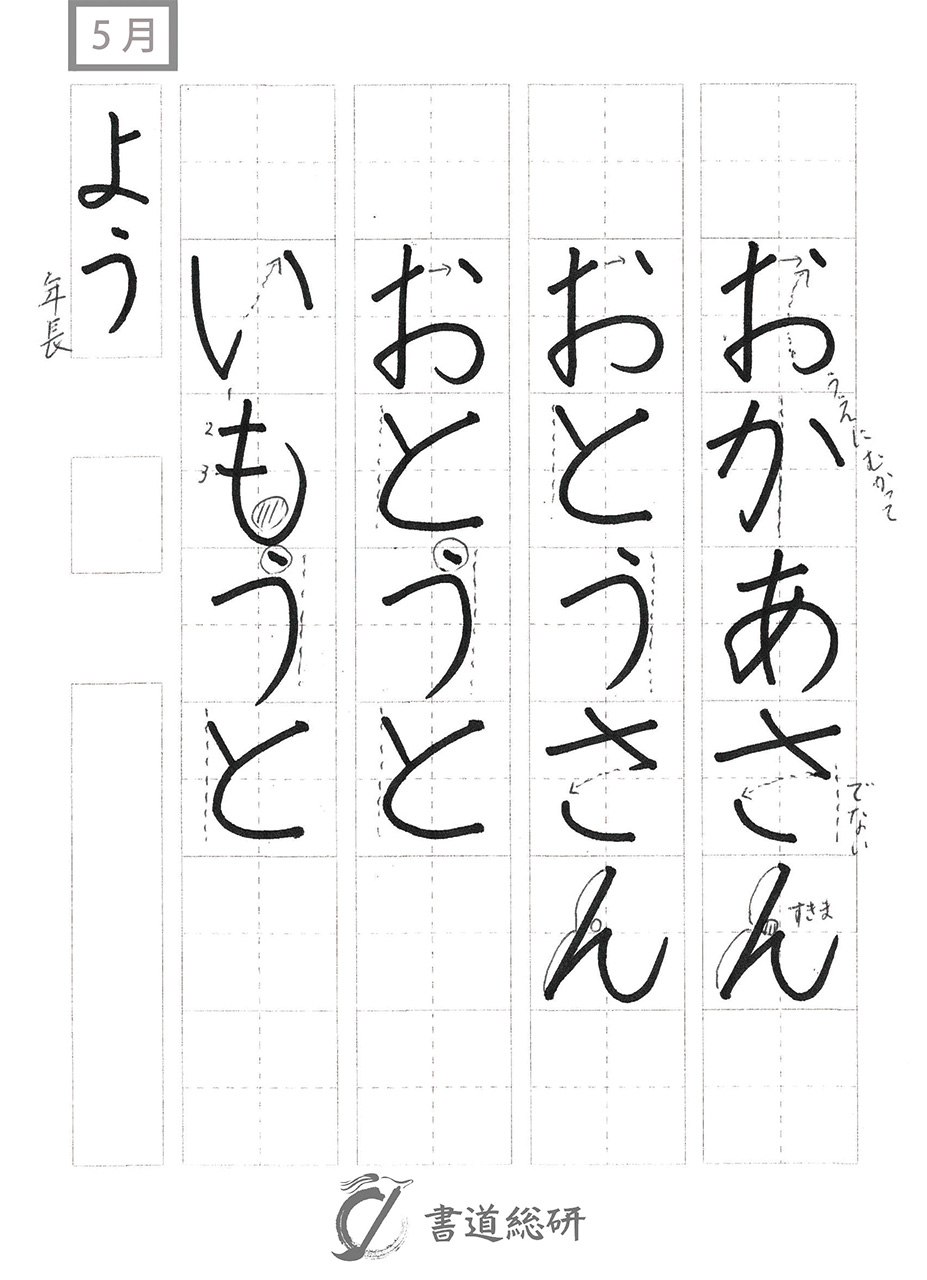 5月
おかあさん
うえにむかって
でない
すきま
おとうさん
おとうと
いもうと
1
2
3
よう
年長
書道総研